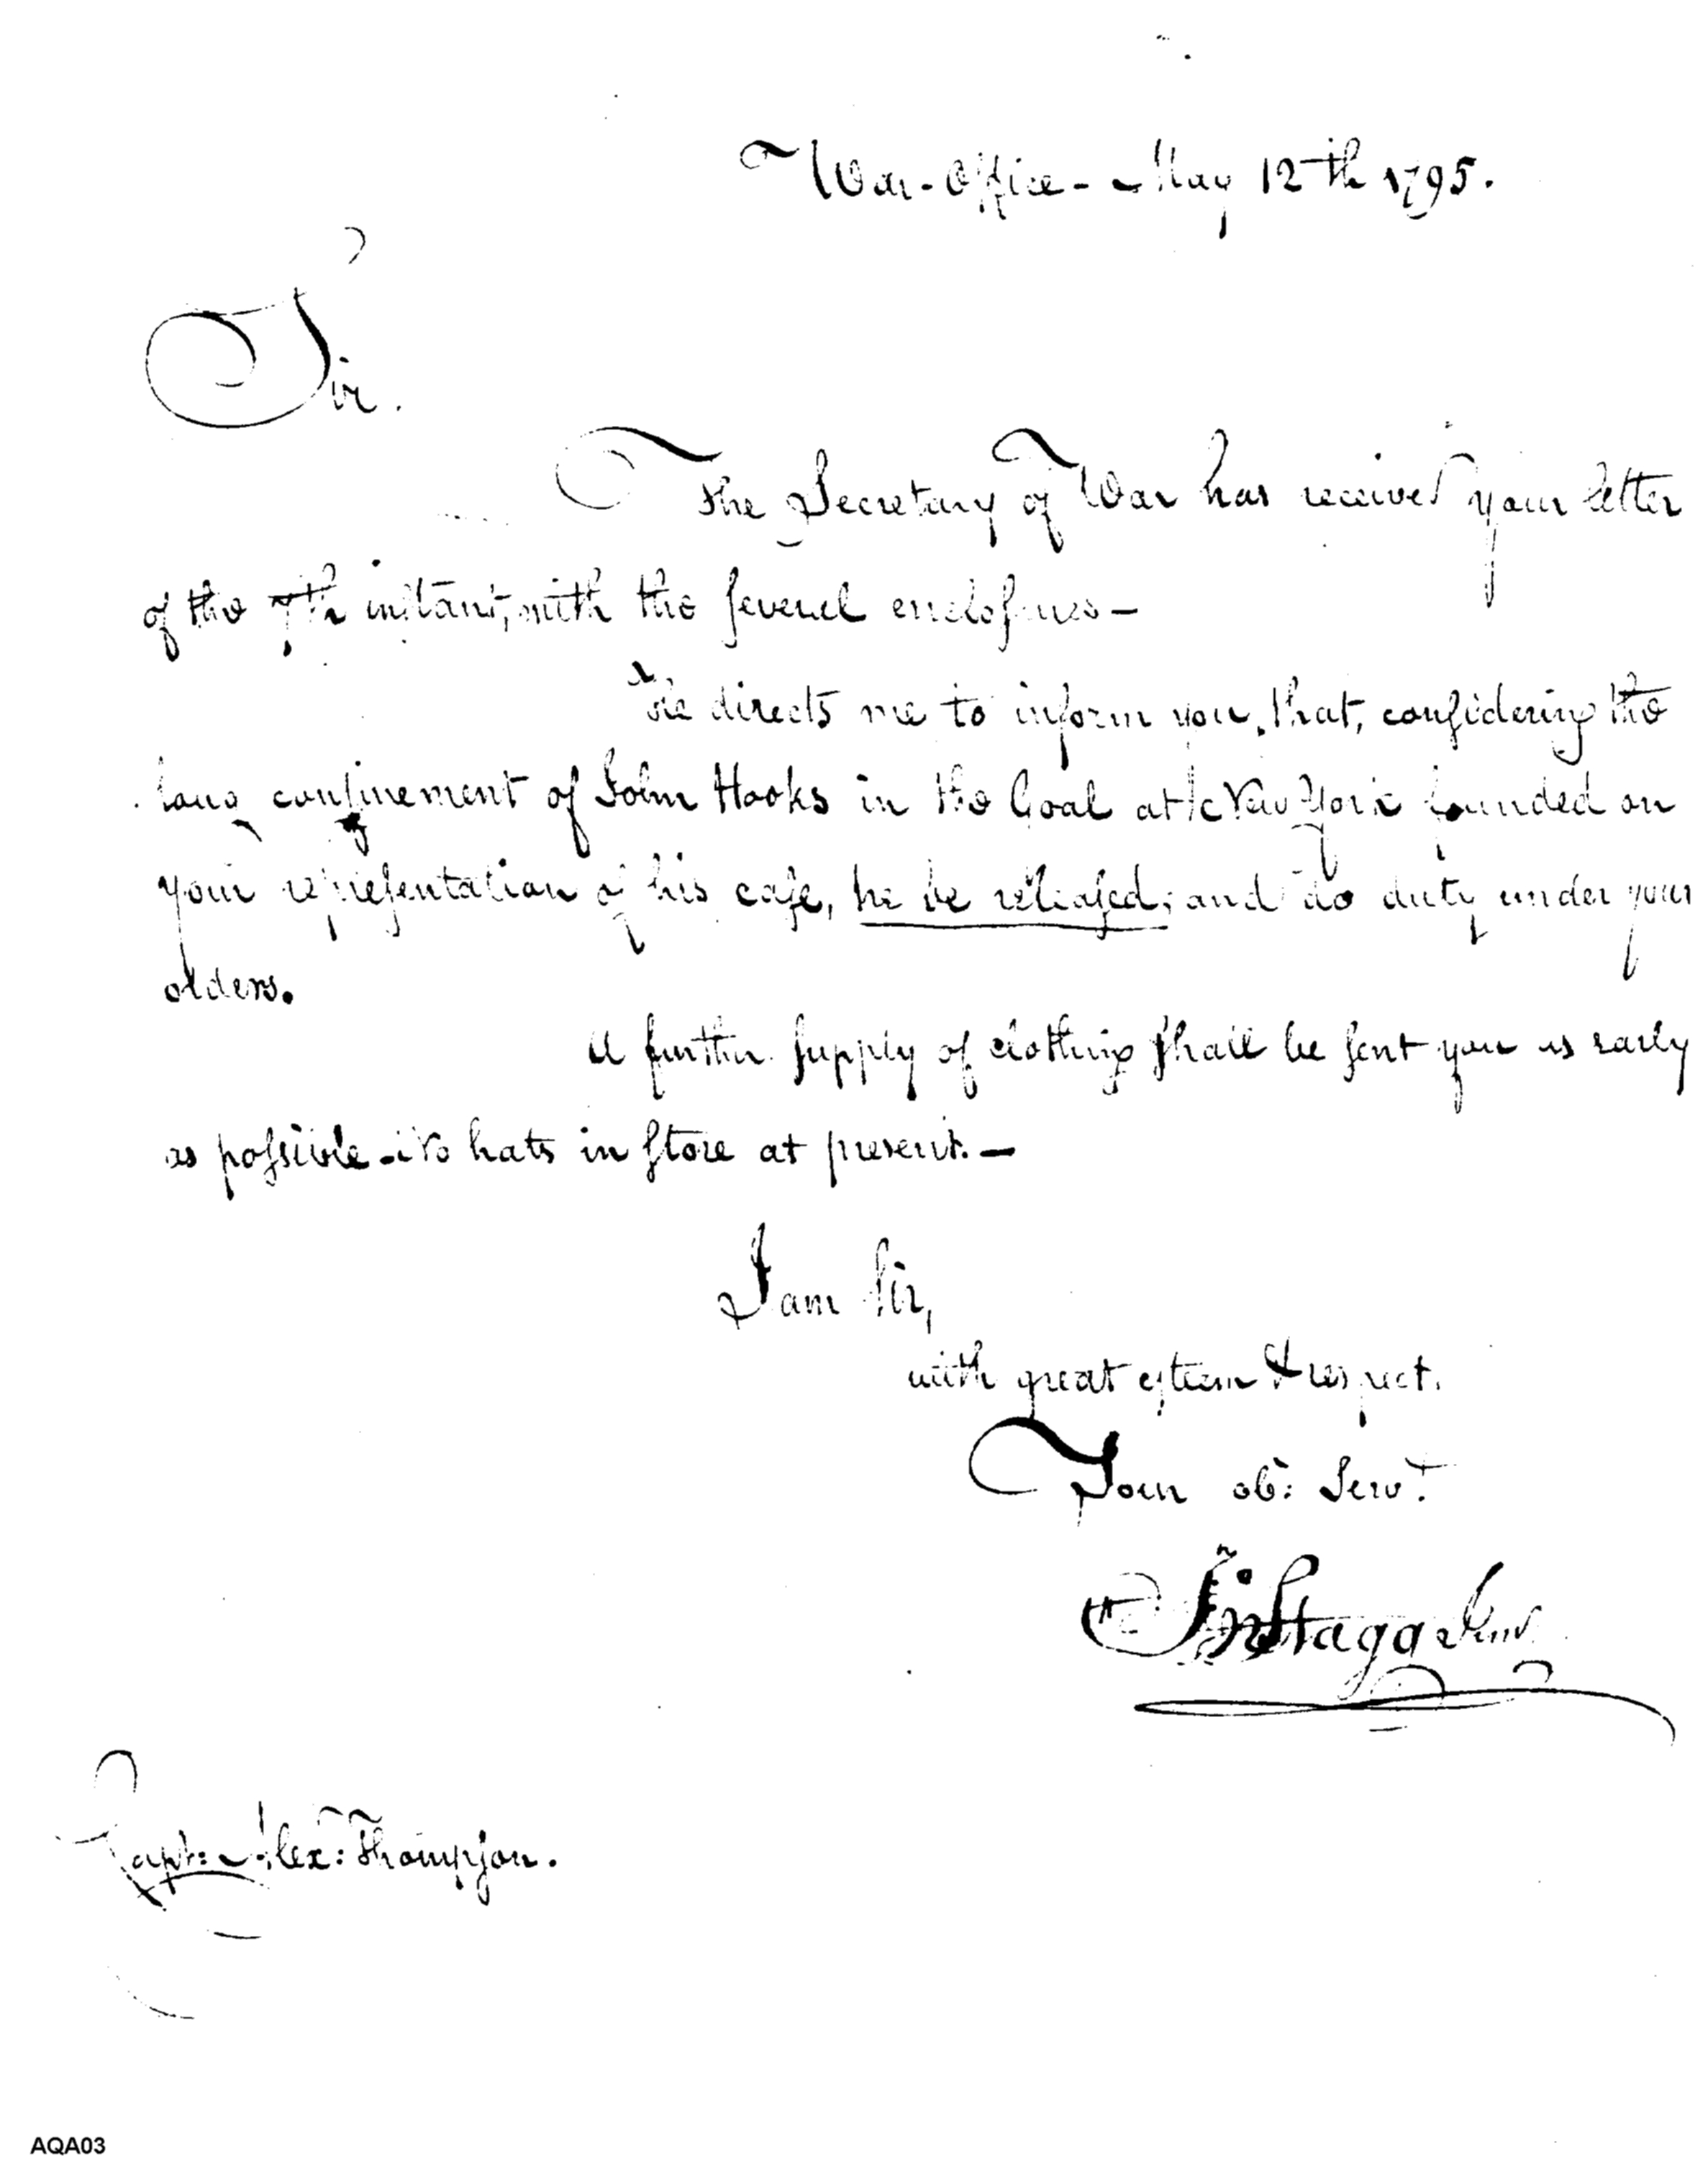 War-Office - May 12th 1795.
Sir.
The Secretary of War has received your letter
of the 7th instant, with the several enclosures —
He directs me to inform you, that, considering the
long confinement of John Hooks in the Goal at New York founded on
your representation of his case, he be released; and do duty under your
orders.
A further supply of clothing shall be sent you as early
as possible - No hats in store at present. —
I am Sir,
with great esteem & respect.
Your ob: Servt.
Jno Stagg Junr.
Capt: Alex: Thompson.
AQA03